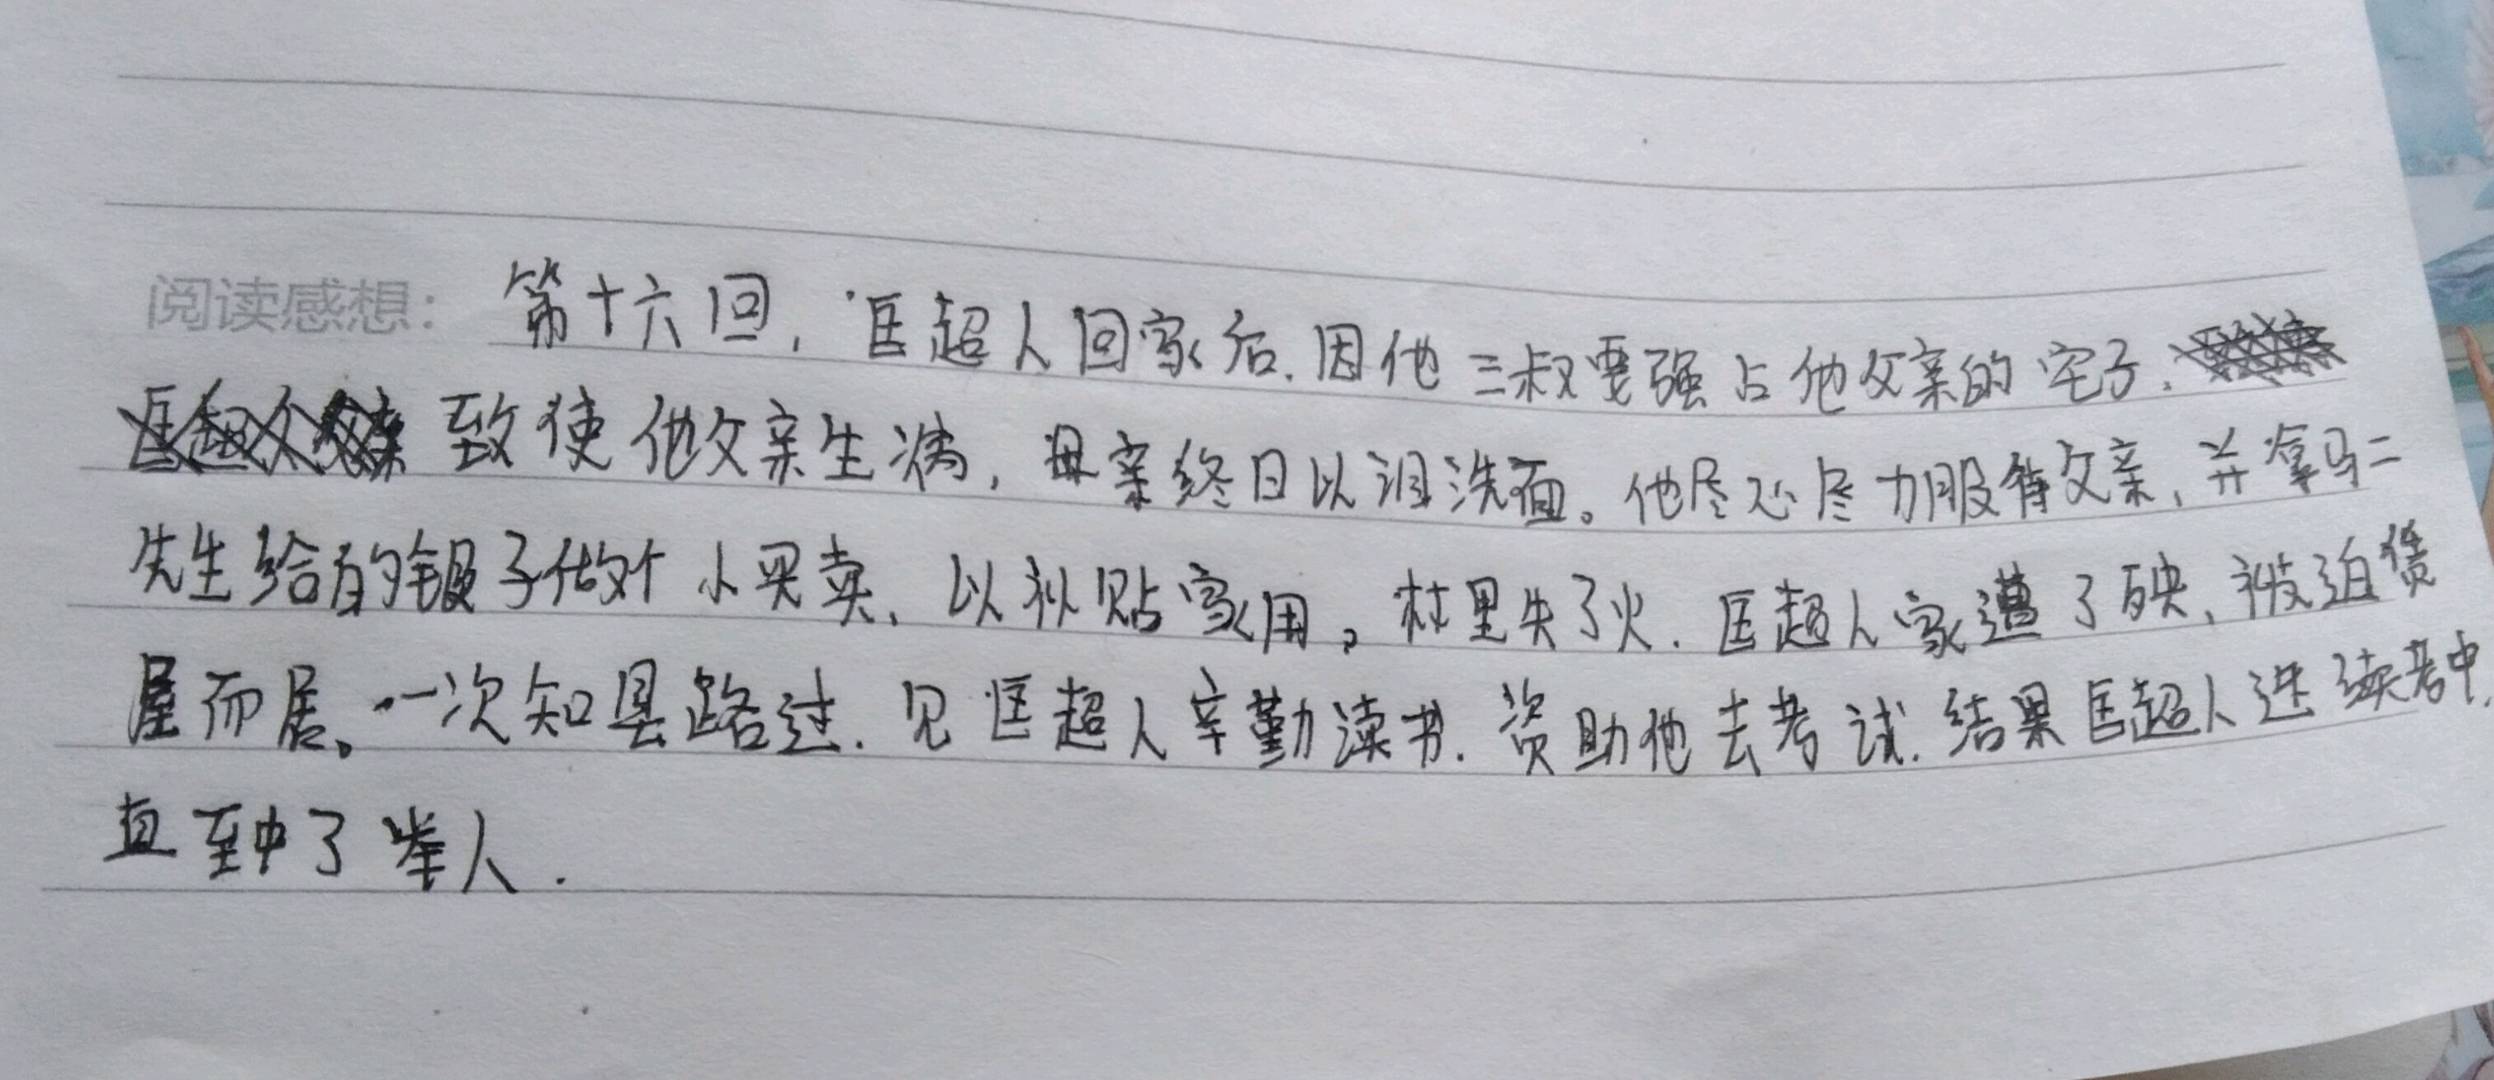 阅读感想：第十六回，匡超人回家后，因他三叔要强占他父亲的宅子，
致使他父亲生病，母亲终日以泪洗面。他尽心尽力服侍父亲，并拿马二
先生给的银子做个小买卖，以补贴家用。村里失了火，匡超人家遭了殃，被迫赁
屋而居。一次知县路过，见匡超人辛勤读书，资助他去考试，结果匡超人连续考中，
直至中了举人.